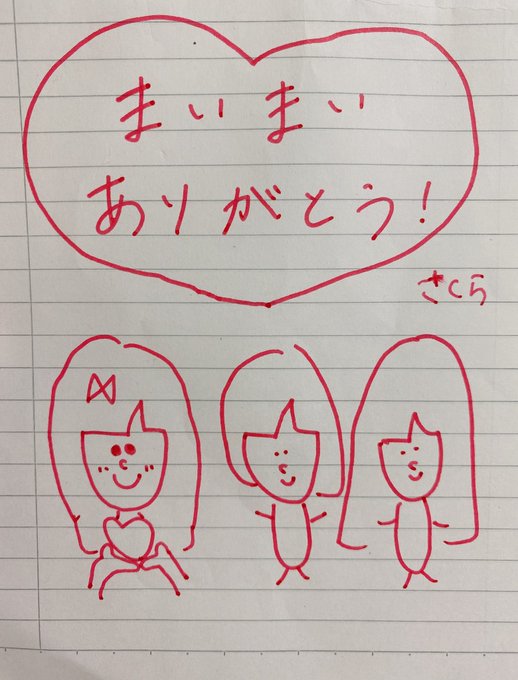 まいまい
ありがとう!
さくら